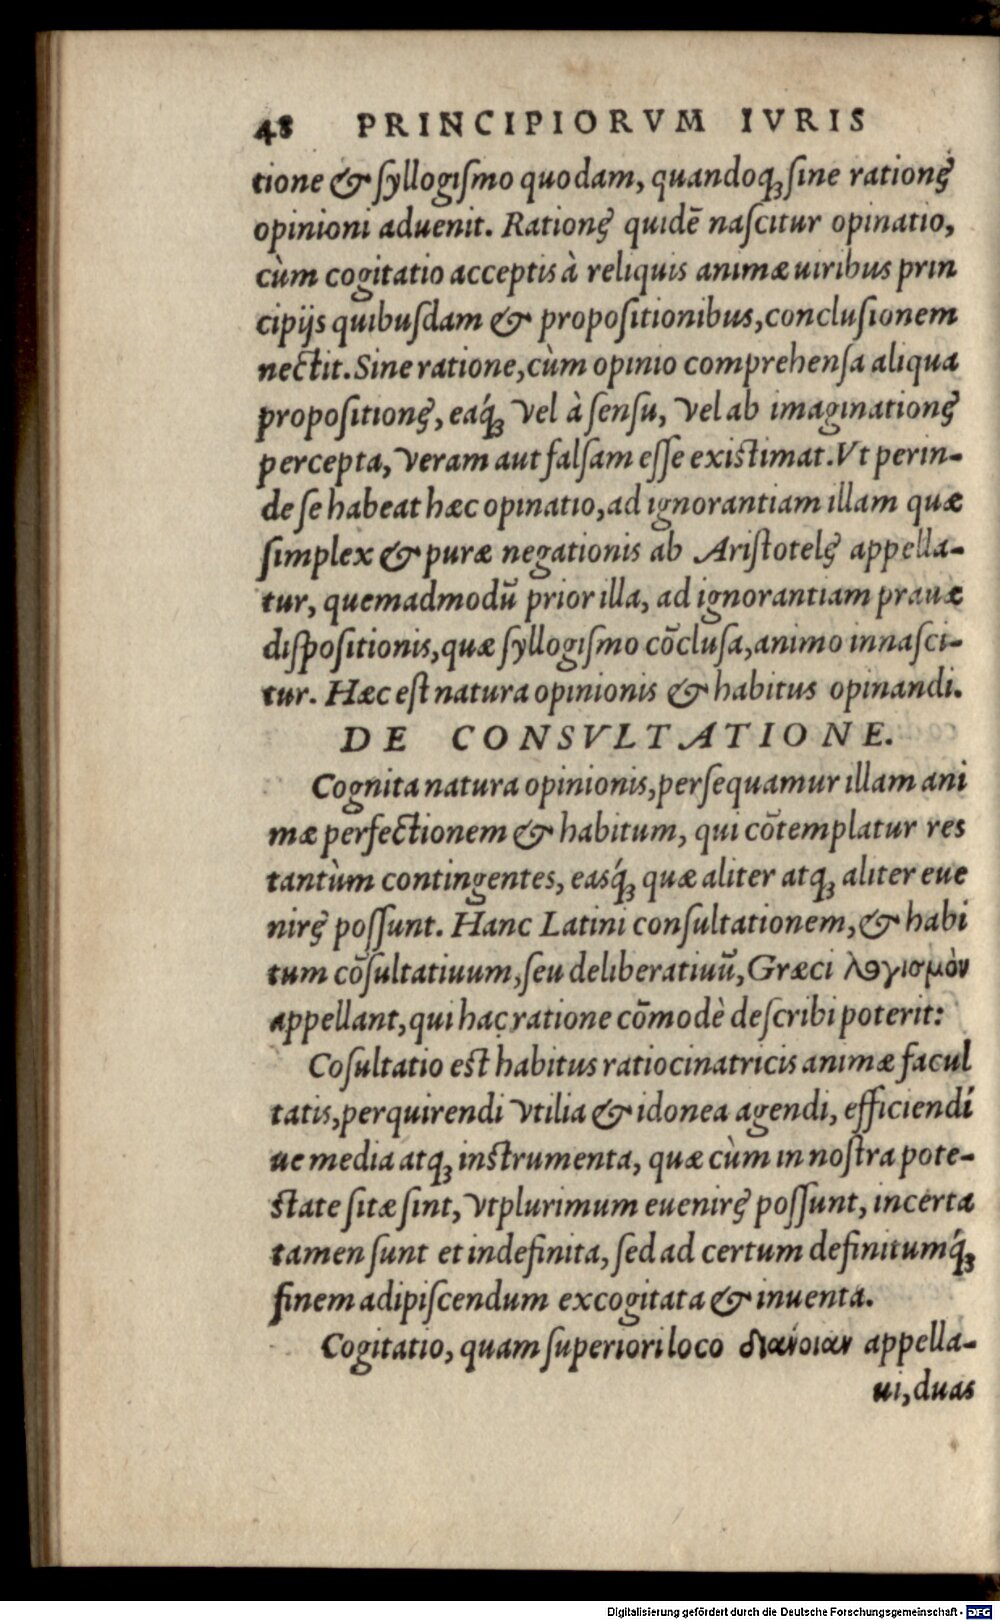 48 PRINCIPIORVM IVRIS
tione & ſyllogiſmo quodam, quandoq; ſine ratione
opinioni aduenit. Ratione quidē naſcitur opinatio,
cùm cogitatio acceptis à reliquis animæ uiribus prin
cipijs quibuſdam & propoſitionibus, concluſionem
nectit. Sine ratione, cùm opinio comprehenſa aliqua
propoſitione, eaq́; vel à ſenſu, vel ab imaginatione
percepta, veram aut falſam eſſe exiſtimat. Vt perin-
de ſe habeat hæc opinatio, ad ignorantiam illam quæ
ſimplex & puræ negationis ab Ariſtotele appella-
tur, quemadmodū prior illa, ad ignorantiam prauæ
diſpoſitionis, quæ ſyllogiſmo cōcluſa, animo innaſci-
tur. Hæc eſt natura opinionis & habitus opinandi.
DE CONSVLTATIONE.
Cognita natura opinionis, perſequamur illam ani
mæ perfectionem & habitum, qui cōtemplatur res
tantùm contingentes, easq́; quæ aliter atq; aliter eue
nire poſſunt. Hanc Latini conſultationem, & habi
tum cōſultatiuum, ſeu deliberatiuū, Græci λογισμὸν
appellant, qui hac ratione cōmodè deſcribi poterit:
Coſultatio eſt habitus ratiocinatricis animæ facul
tatis, perquirendi vtilia & idonea agendi, efficiendi
ue media atq; inſtrumenta, quæ cùm in noſtra pote-
ſtate ſitæ ſint, vtplurimum euenire poſſunt, incerta
tamen ſunt et indefinita, ſed ad certum definitumq́;
finem adipiſcendum excogitata & inuenta.
Cogitatio, quam ſuperiori loco διανοιαν appella-
ui, duas
Digitalisierung gefördert durch die Deutsche Forschungsgemeinschaft - DFG